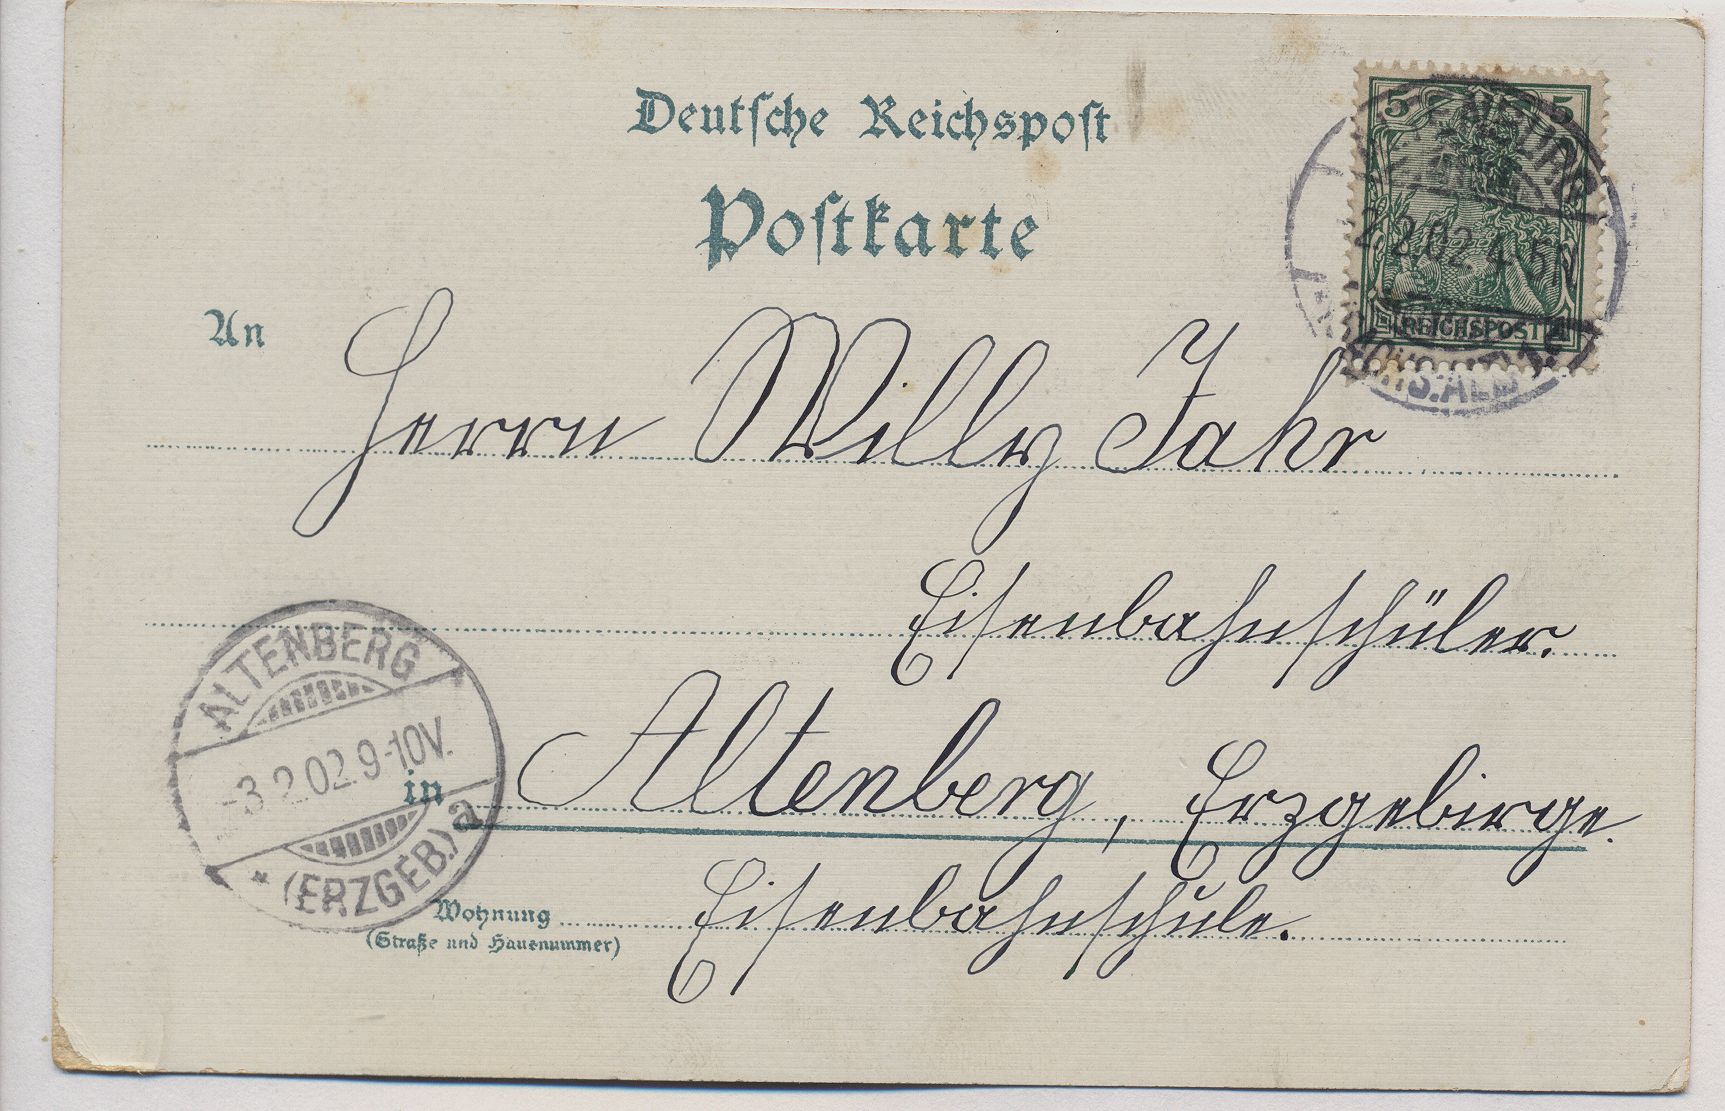 Deutsche Reichspost
Postkarte
5 5
2.2.02 4-5N
REICHSPOST
An Herrn Willy Jahr
Eisenbahnschüler.
in Altenberg, Erzgebirge.
Wohnung Eisenbahnschule.
(Straße und Hausnummer)
ALTENBERG
-3.2.02.9-10V.
* (ERZGEB.) a